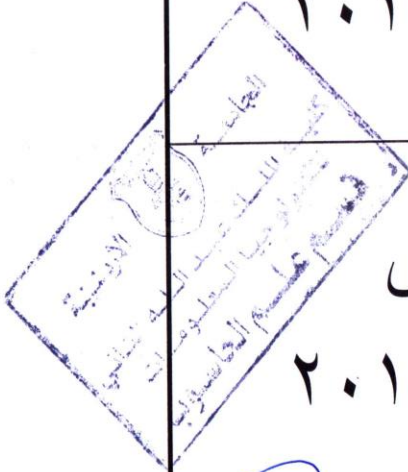 ١٠١
الجامعة الاردنية
كلية الملك عبد الله الثاني
لتكنولوجيا المعلومات
قسم علم الحاسوب
٢٠١